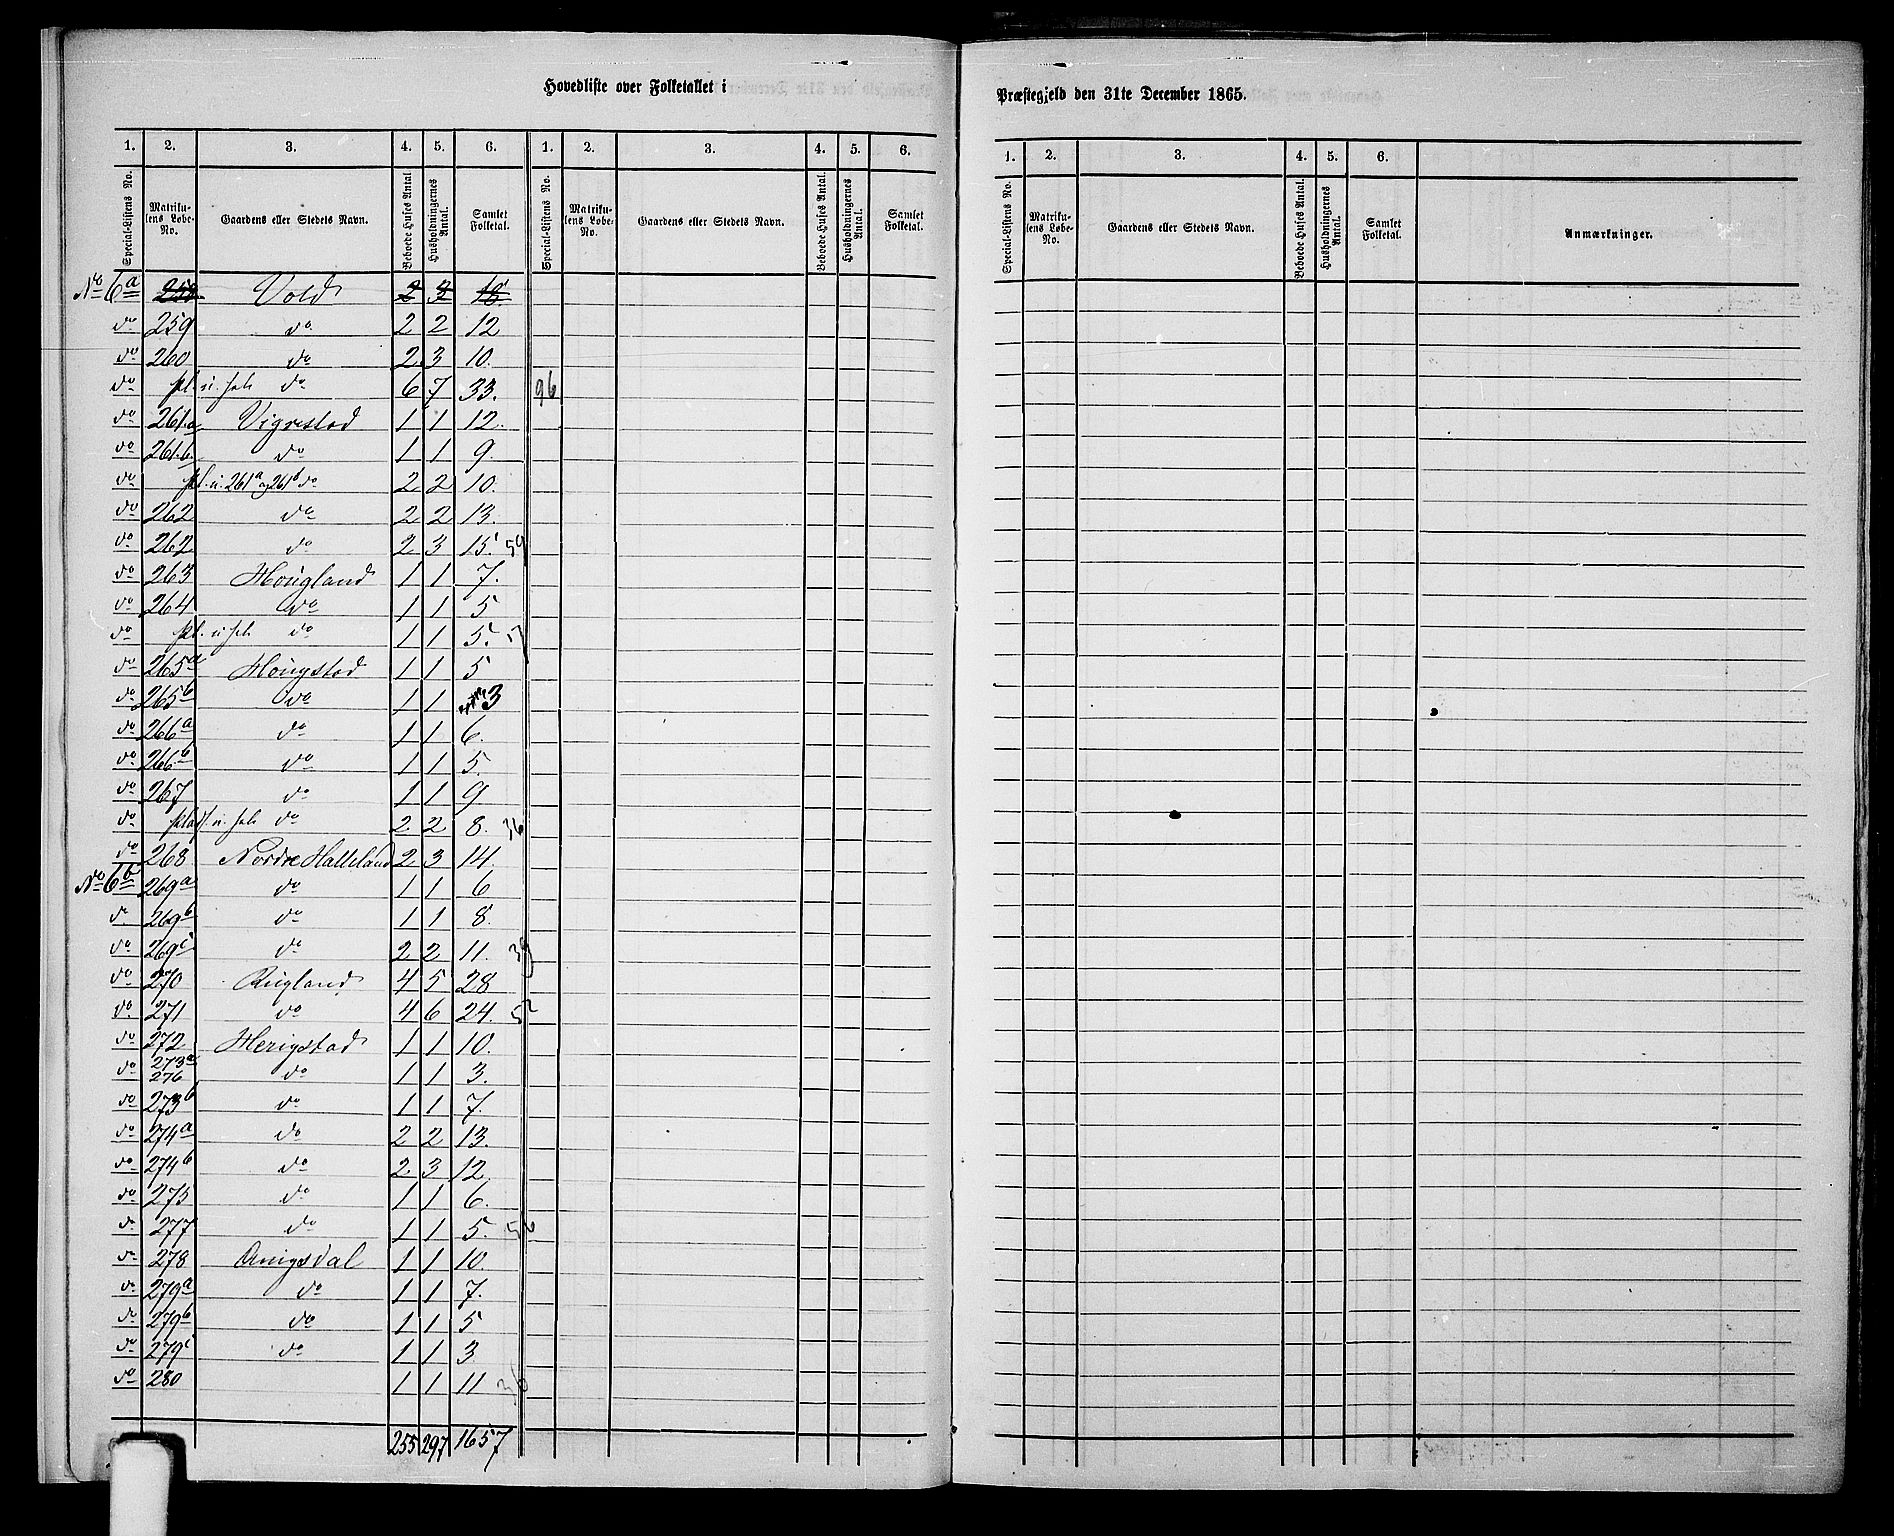 Hovedliste over Folketallet i
Præstegjeld den 31te December 1865.
1. 2. 3. 4. 5. 6. 1. 2. 3. 4. 5. 6.
1. 2. 3. 4. 5. 6.
Special-Listens No. Matrikulens Løbe-No. Gaardens eller Stedets Navn. Beboede Huses Antal. Husholdningernes Antal. Samlet Folketal. Special-Listens No. Matrikulens Løbe-No. Gaardens eller Stedets Navn. Beboede Huses Antal. Husholdningernes Antal. Samlet Folketal.
Special-Listens No. Matrikulens Løbe-No. Gaardens eller Stedets Navn. Beboede Huses Antal. Husholdningernes Antal. Samlet Folketal. Anmærkninger.
No 6a 258 Vold 2 3 18
do 259 do 2 2 12
do 260 do 2 3 10.
do pl. u. do 6 7 33. 96
do 261.a Vigrestad 1 1 12.
do 261.b. do 1 1 9.
do pl. u. 261a og 261b do 2 2 10.
do 262 do 2 2 13.
do 262 do 2 3 15. 59
do 263 Hougland 1 1 7.
do 264 do 1 1 5
do pl. u. do 1 1 5. 17
do 265a Hougstad 1 1 5
do 265b do 1 1 3
do 266a do 1 1 6.
do 266b do 1 1 5.
do 267 do 1 1 9
do plads. u. do 2 2 8. 36
do 268 Nordre Halleland 2 3 14.
No 6b 269a do 1 1 6
do 269b do 1 1 8.
do 269c do 2 2 11. 39
do 270 Rugland 4 5 28
do 271 do 4 6 24. 52
do 272 Herigstad 1 1 10.
do 273a 276 do 1 1 3.
do 273b do 1 1 7.
do 274a do 2 2 13.
do 274b do 2 3 12.
do 275 do 1 1 6.
do 277 do 1 1 5. 56
do 278 Anigsdal 1 1 10.
do 279a do 1 1 7.
do 279b do 1 1 5
do 279c do 1 1 3
do 280 1 1 11 36
255 297 1657